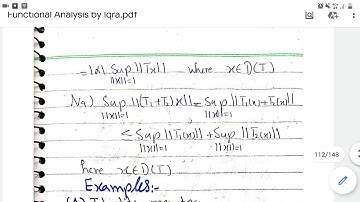 Functional Analysis by Iqra.pdf
= |α| Sup ||Tx|| where x∈D(T)
||x||=1
N4) Sup ||(T₁+T₂)x|| = Sup ||T₁(x)+T₂(x)||
||x||=1 ||x||=1
≤ Sup ||T₁(x)|| + Sup ||T₂(x)||
||x||=1 ||x||=1
here x∈D(T)
Examples:-
112/148